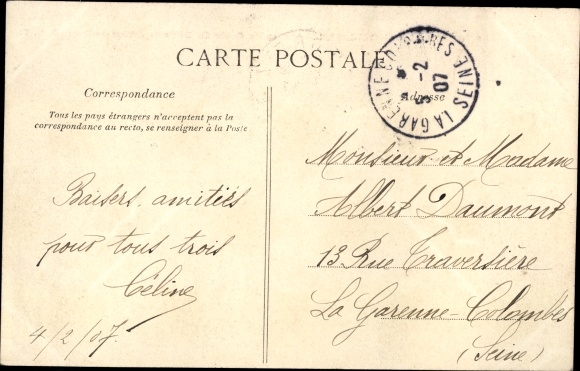 CARTE POSTALE
Correspondance
Tous les pays étrangers n'acceptent pas la
correspondance au recto, se renseigner à la Poste
Baisers, amitiés
pour tous trois
Céline
4/2/07.
LA GARENNE COLOMBES SEINE
-2
07
Adresse
Monsieur et Madame
Albert Daumont
13 Rue Traversière
La Garenne-Colombes
(Seine)